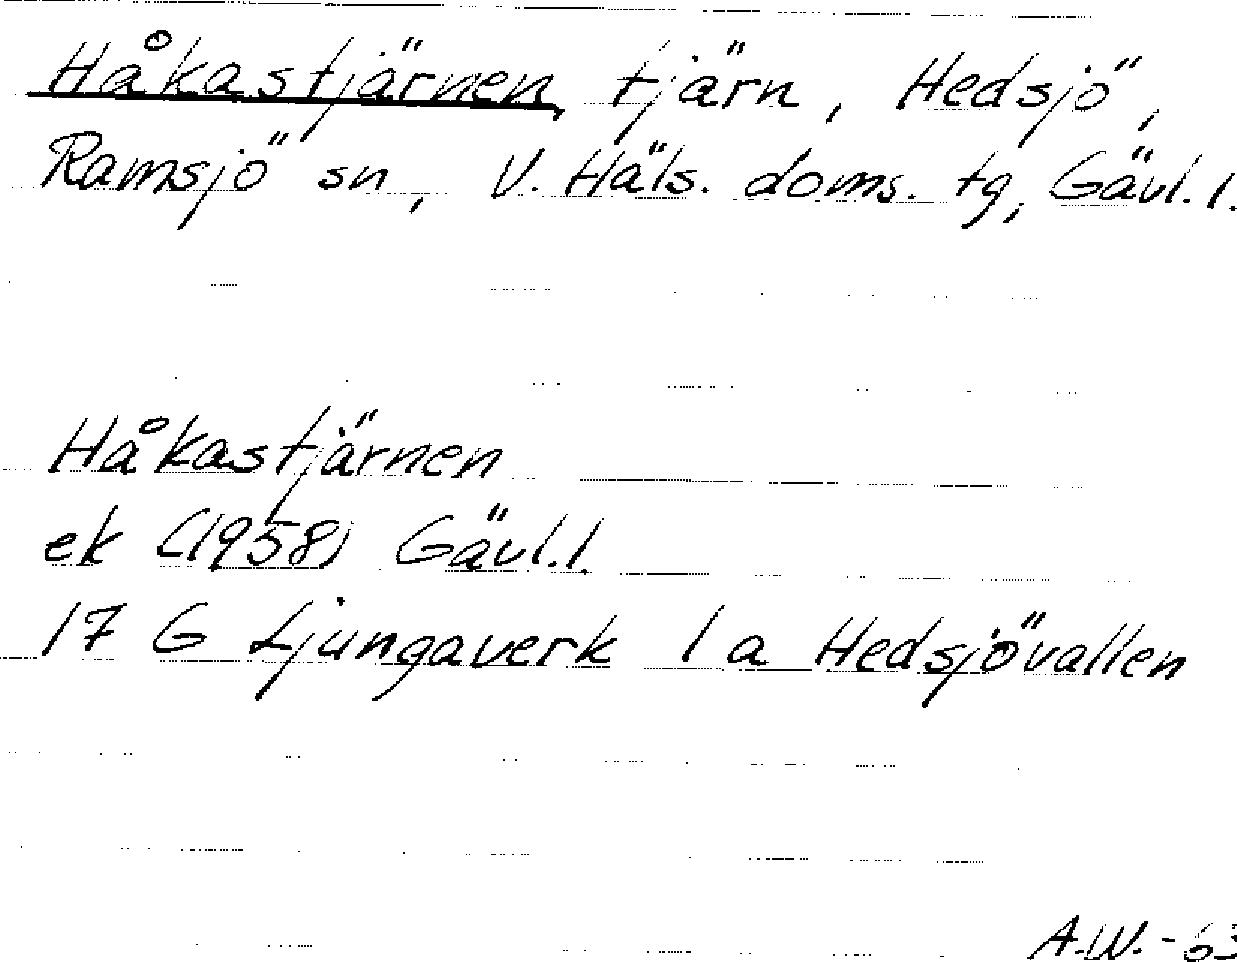 Håkastjärnen, tjärn, Hedsjö,
Ramsjö sn, V. Häls. doms. tg, Gävl. l.
Håkastjärnen
ek (1958) Gävl. l.
17 G Ljungaverk 1 a Hedsjövallen
A.W. - 63